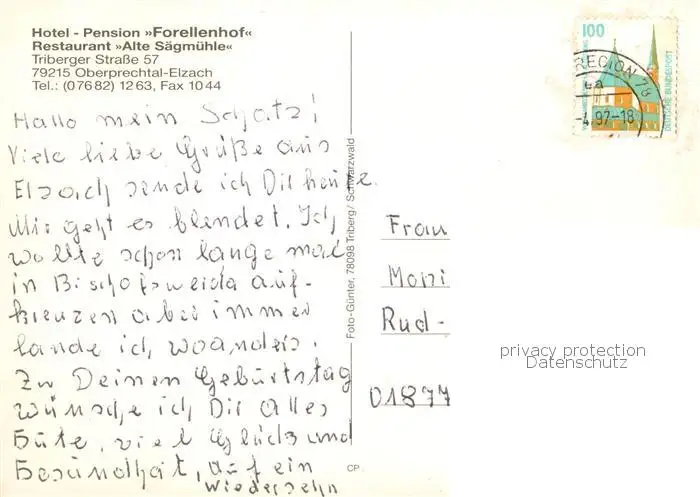 Hotel - Pension »Forellenhof«
Restaurant »Alte Sägmühle«
Triberger Straße 57
79215 Oberprechtal-Elzach
Tel.: (07682) 1263, Fax 1044
Hallo mein Schatz!
Viele liebe Grüße aus
Elzach sende ich Dir heute.
Mir geht es blendet. Ich
wollte schon lange mal
in Bischofswerda auf-
kreuzen aber immer
lande ich woanders.
Zu Deinen Geburtstag
wünsche ich Dir alles
Gute, viel Glück und
Gesundheit, auf ein
wiedersehn
Foto-Günter, 78098 Triberg/Schwarzwald
CP
100
DEUTSCHE BUNDESPOST
REGION 76
-4.97-18
Frau
Moni
Rud-
01877
privacy protection
Datenschutz